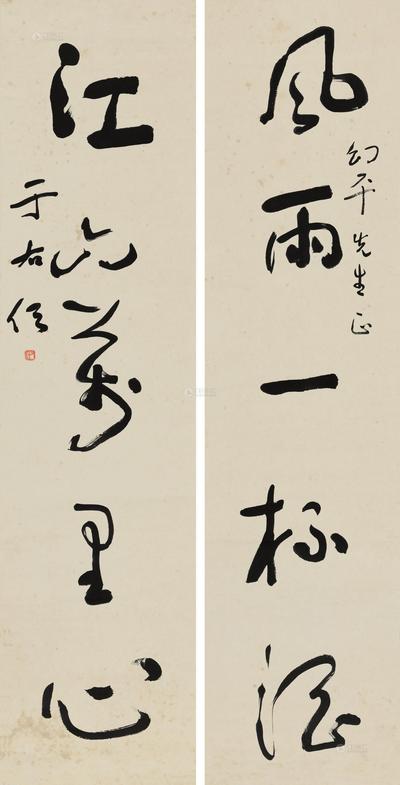 幻平先生正
風雨一杯酒
江山萬里心
于右任